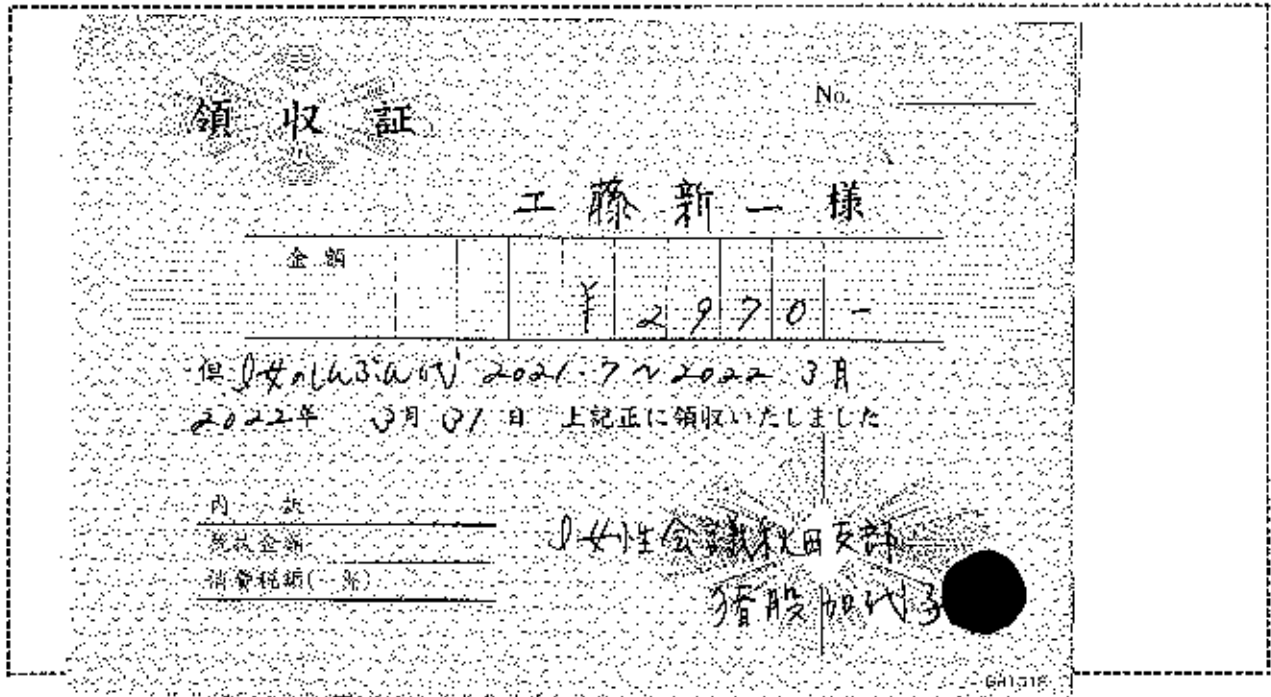 領収証
No.
工藤新一様
金額
¥2970-
但 I女のしんぶん代 2021.7~2022 3月
2022年 3月31日 上記正に領収いたしました
内 訳
税抜金額
消費税額( %)
I女性会議秋田支部
猪股加代子